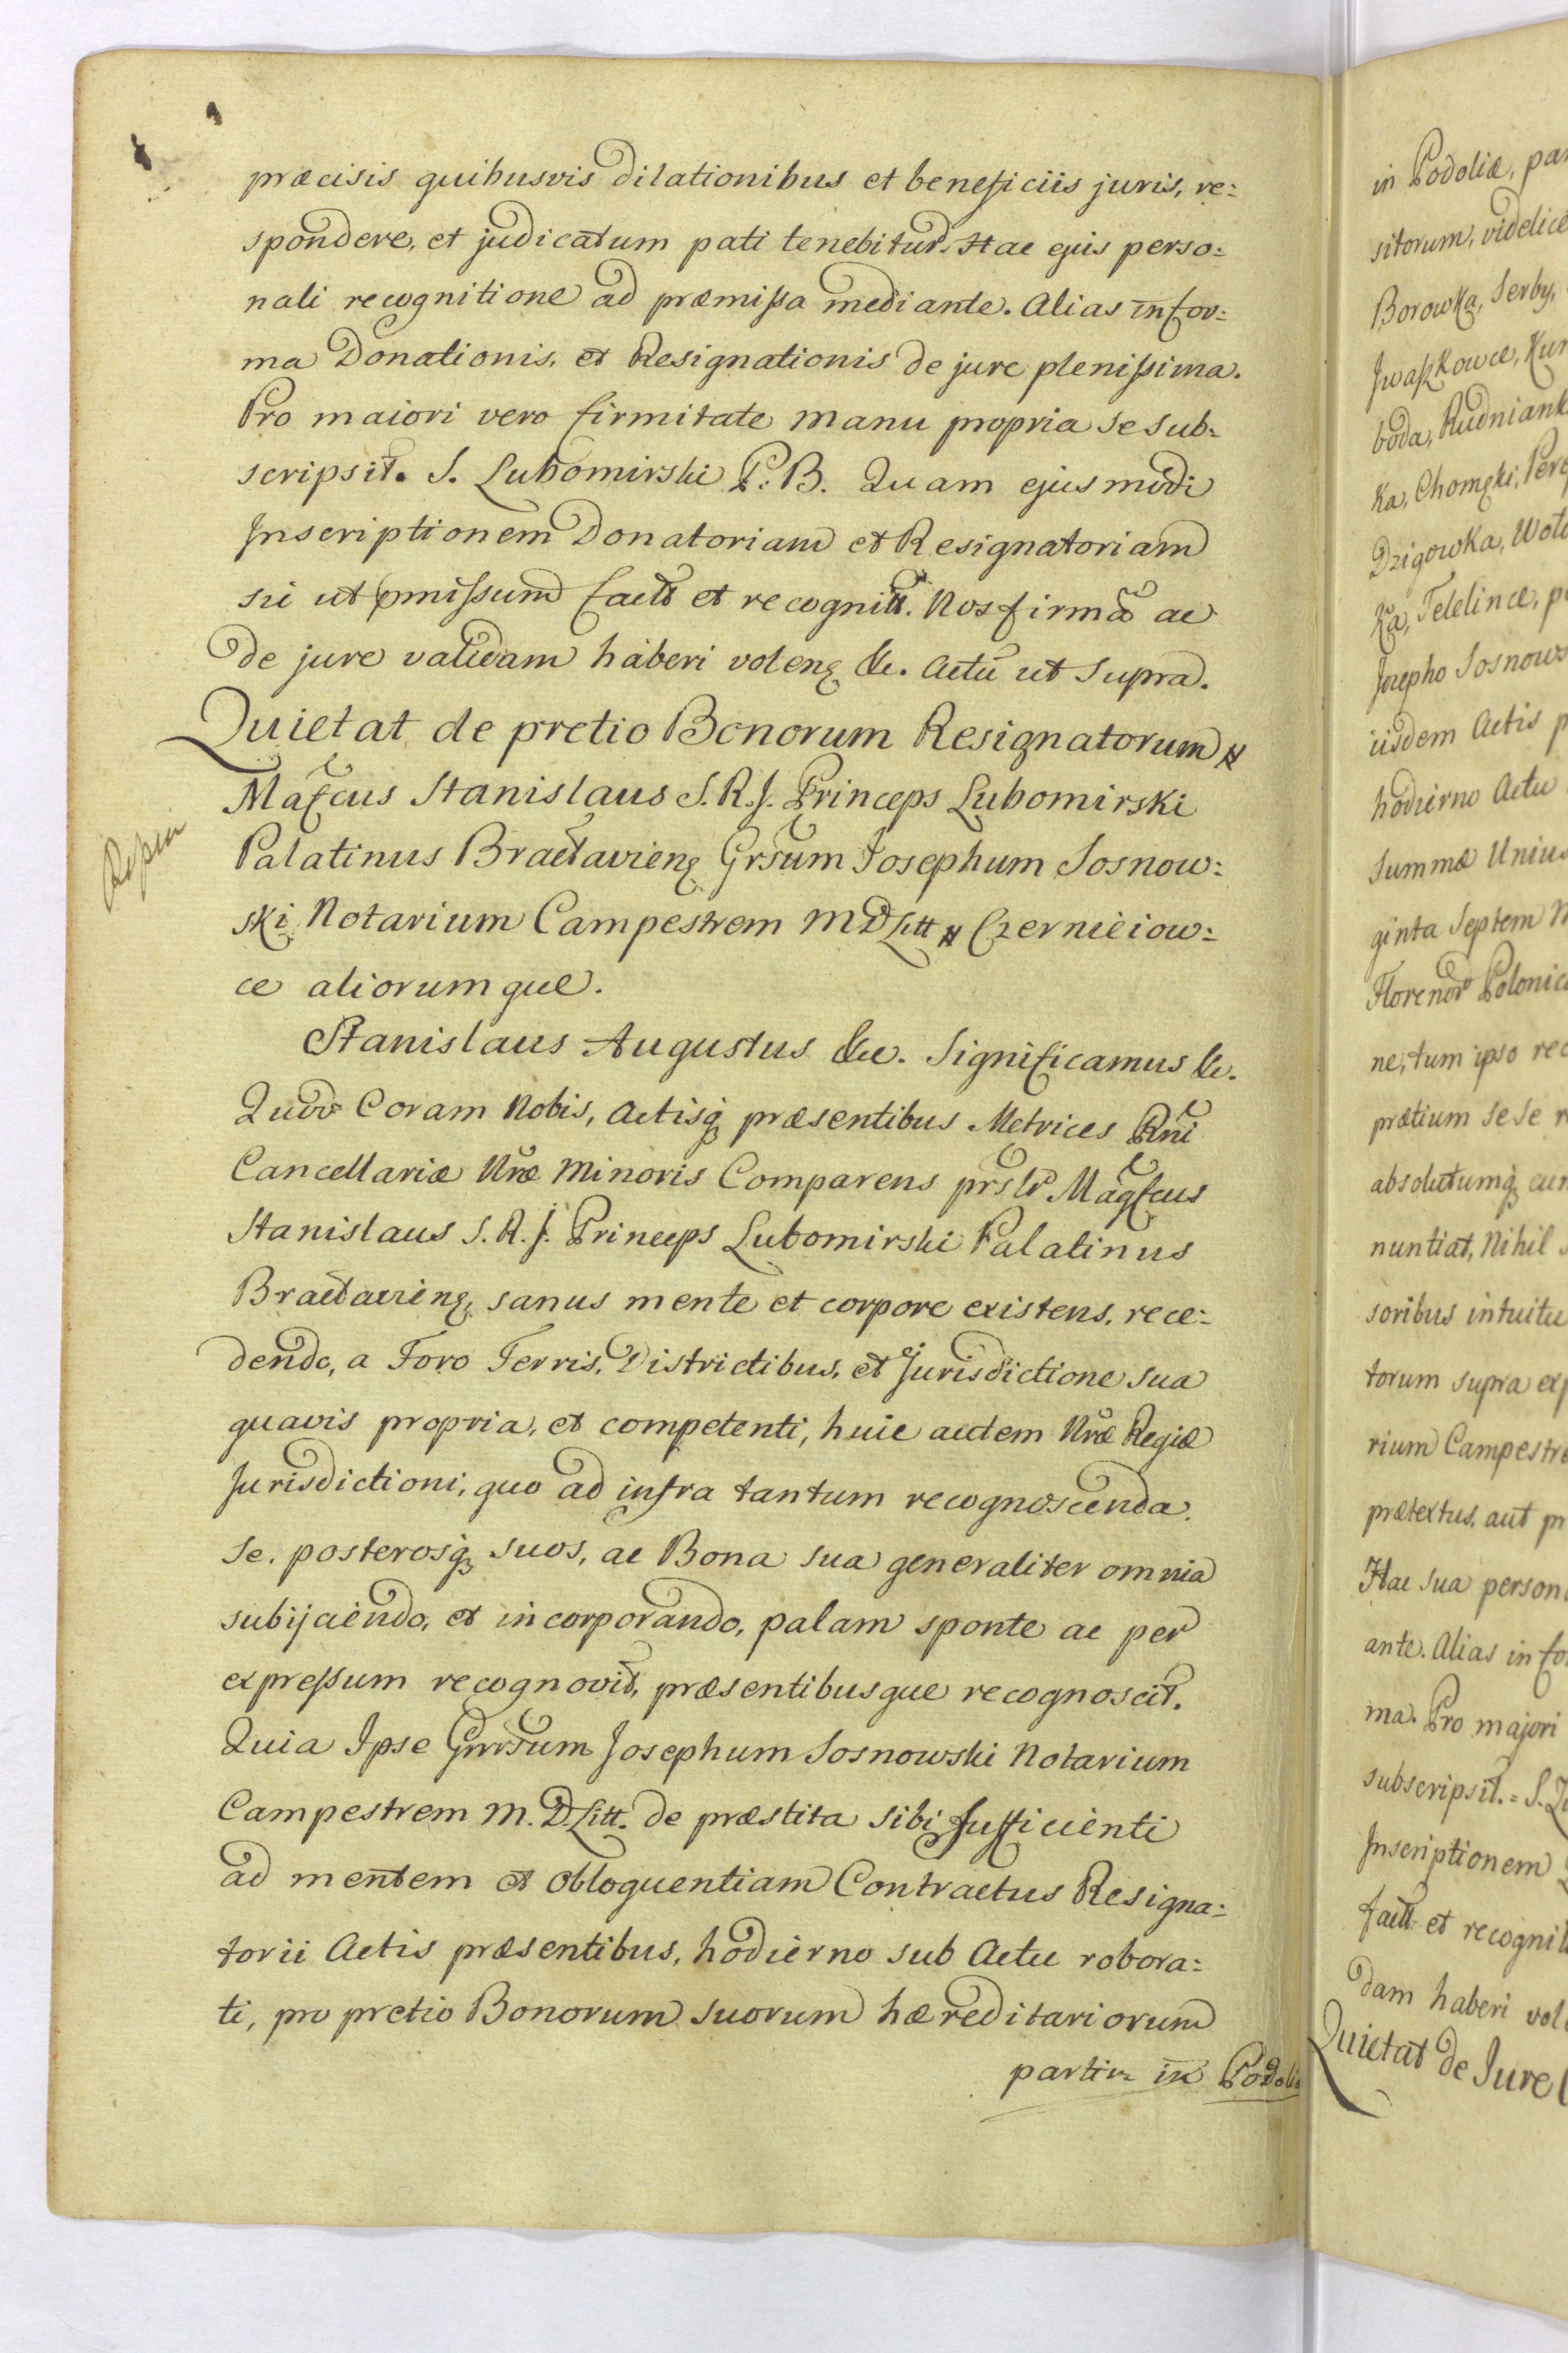 præcisis quibusvis dilationibus et beneficiis juris, re:
spondere, et judicatum pati tenebitur. Hac ejus perso:
nali recognitione ad præmissa mediante. Alias in for:
ma Donationis, et Resignationis de jure plenissima.
Pro maiori vero firmitate manu propria se sub:
scripsit. S. Lubomirski P: B. Quam ejusmodi
Inscriptionem Donatoriam et Resignatoriam
sic ut pmissum fact et recognitt. Nos firmã ac
de jure validam haberi volenę &c. Actũ ut Supra.
Quietat de pretio Bonorum Resignatorum
Magfcus Stanislaus S. R. J. Princeps Lubomirski
Palatinus Bractavienę Grsum Josephum Sosnow:
ski Notarium Campestrem M D Litt Czernieiow:
ce aliorumque.
Stanislaus Augustus &c. Significamus &c.
Quod Coram Nobis, Actisq præsentibus Metrices Rni
Cancellariæ Nræ Minoris Comparens prsltr Magfcus
Stanislaus S. R. J. Princeps Lubomirski Palatinus
Bractavienę, sanus mente et corpore existens, rece:
dendo, a Foro Terris, Districtibus, et Jurisdictione sua
quavis propria, et competenti, huic autem Nræ Regiæ
Jurisdictioni, quo ad infra tantum recognoscenda,
se, posterosq suos, ac Bona sua generaliter omnia
subijciendo, et incorporando, palam sponte ac per
expressum recognovit, præsentibusque recognoscit.
Quia Ipse Gnrsum Josephum Sosnowski Notarium
Campestrem M. D. Litt. de præstita sibi sufficienti
ad mentem et obloquentiam Contractus Resigna:
torii Actis præsentibus, hodierno sub Actu robora:
ti, pro pretio Bonorum suorum hæreditariorum
partim in Podoliæ
in Podoliæ,
sitorum,
Borowka, Serby,
Jwaszkowce,
Dzigowka,
Ka, Telelince,
Josepho
iisdem Actis
hodierno Actu
Summæ Unius
ginta Septem
ne, tum ipso
prætium sese
absolutumq
nuntiat, Nihil
soribus intuitu
torum supra
rium
prætextus, aut
Hac sua
ante. Alias in
ma. Pro majori
subscripsit. = S.
Inscriptionem
fact et
dam haberi
Quietat de Jure